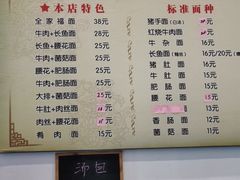 ★本店特色★
全家福面 38元
牛肉+长鱼面 28元
长鱼+腰花面 28元
牛肉+腰花面 28元
牛肉+菌菇面 28元
腰花+肥肠面 25元
牛肉+肥肠面 25元
大排+菌菇面 25元
牛肚+肉丝面
牛肚+肉丝面
肴肉面 15元
标准面种
猪手面(白汤)
红烧牛肉面
牛杂面 16元
长鱼面 16元/20元
猪肚面 16元
牛肚面 16元
肥肠面 15元
腰花面
13元
香肠面 12元
菌菇面 11元